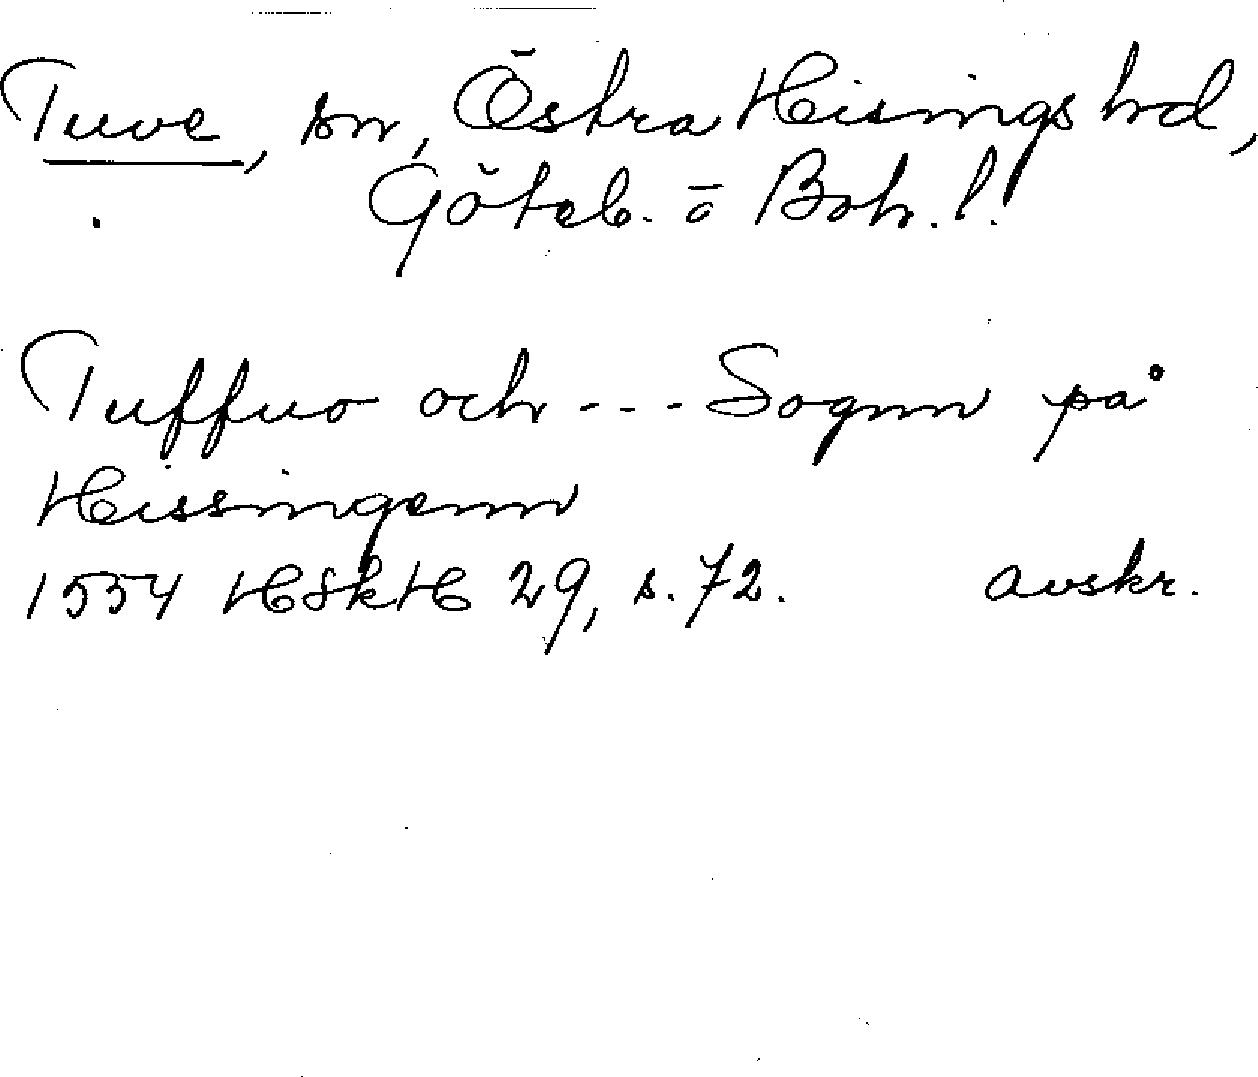 Tuve, sn, Östra Hisings hd,
Göteb. o Boh. l.
Tuffuo och - - - Sognn på
Hissingenn
1554 HSkH 29, s. 72. avskr.